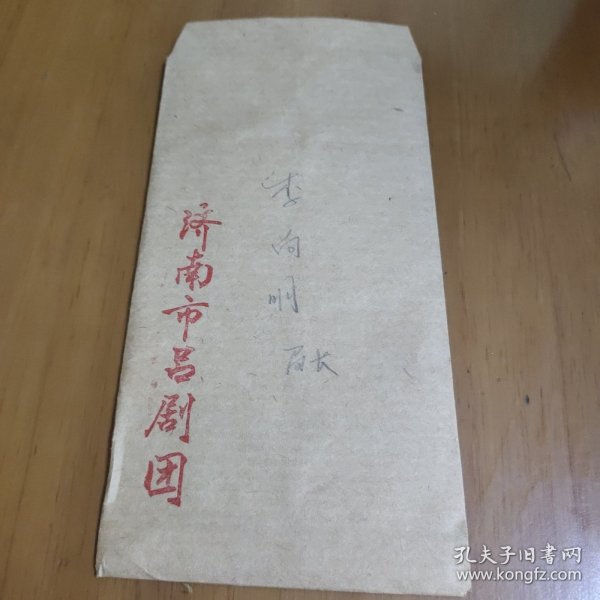 李向明
局长
济南市吕剧团
孔夫子旧书网
www.kongfz.com